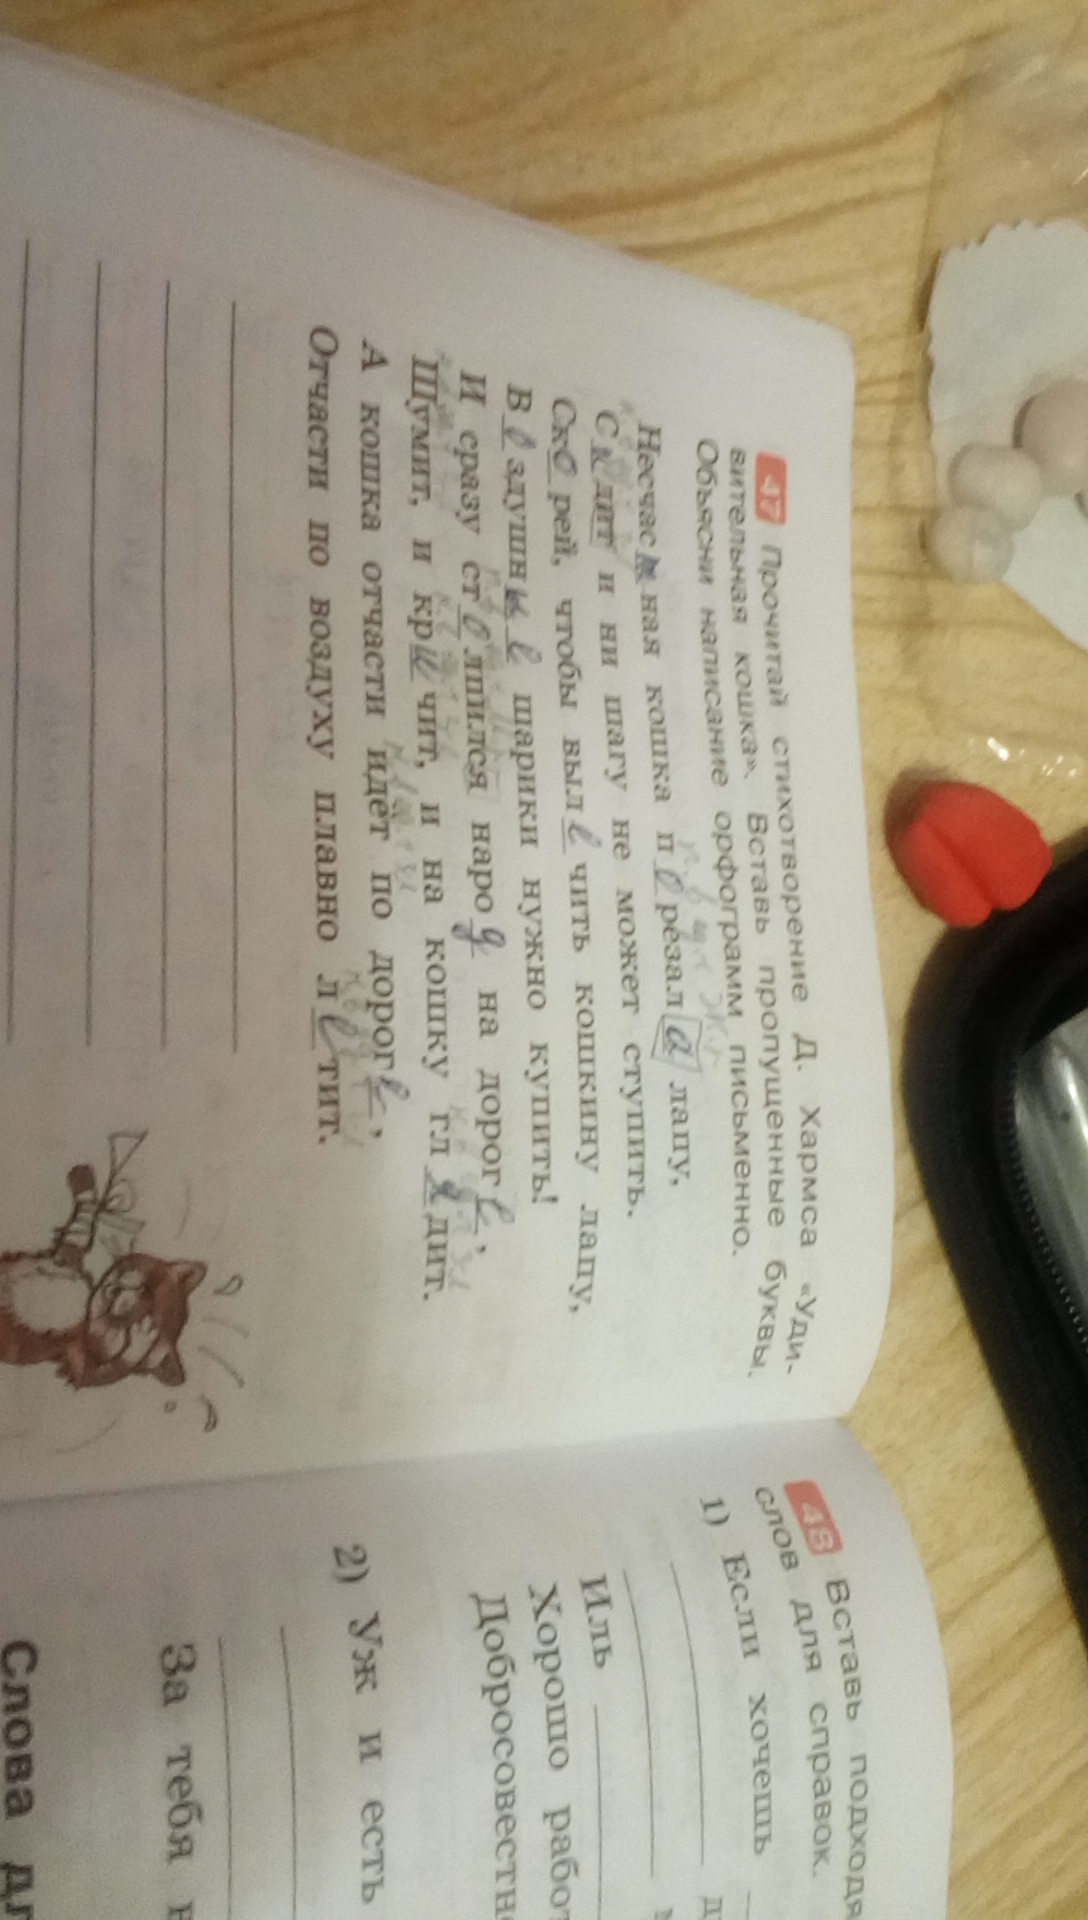 47 Прочитай стихотворение Д. Хармса «Уди-
вительная кошка». Вставь пропущенные буквы.
Объясни написание орфограмм письменно.
Несчастная кошка порезала лапу,
Сидит и ни шагу не может ступить.
Скорей, чтобы вылечить кошкину лапу,
Воздушные шарики нужно купить!
И сразу столпился народ на дороге,
Шумит, и кричит, и на кошку глядит.
А кошка отчасти идёт по дороге,
Отчасти по воздуху плавно летит.
48 Вставь подходя
слов для справок.
1) Если хочешь
Иль
Хорошо работ
Добросовестно
2) Уж и есть
За тебя
Слова дл